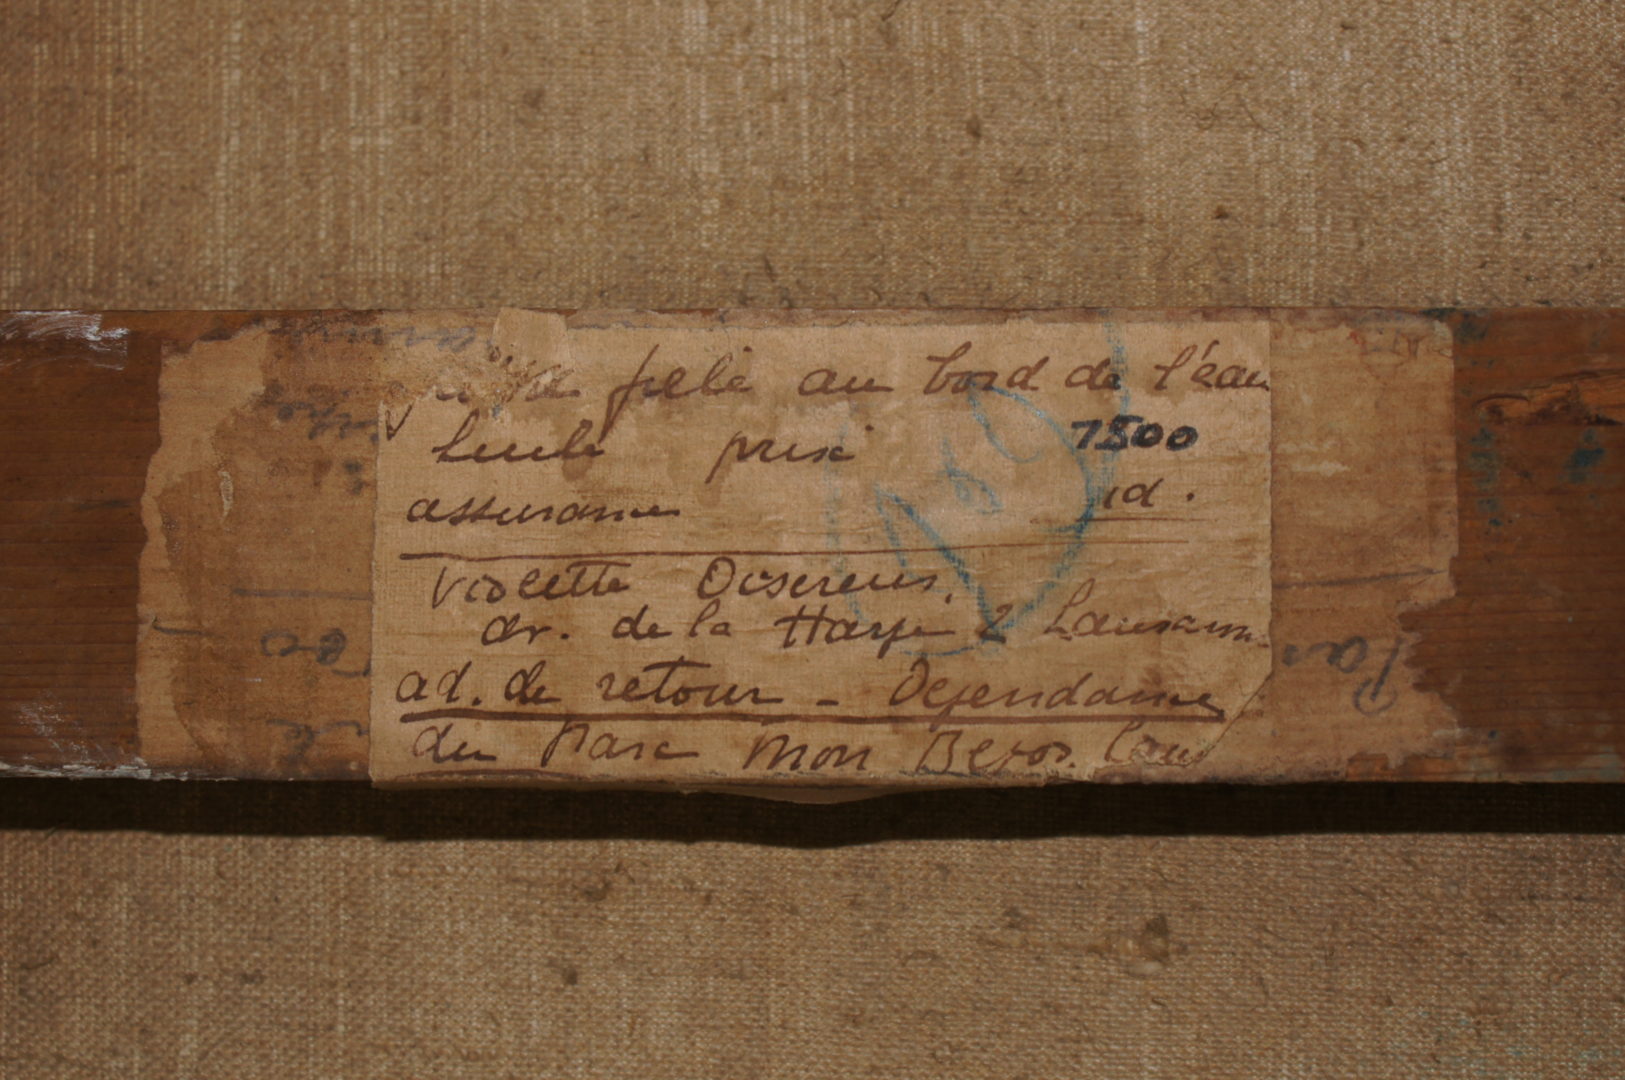 fille au bord de l'eau
huile prix 7500
assurance id.
Violette Diserens,
av. de la Harpe 2 Lausanne
ad. de retour - Dépendance
du Parc Mon Repos. Laus